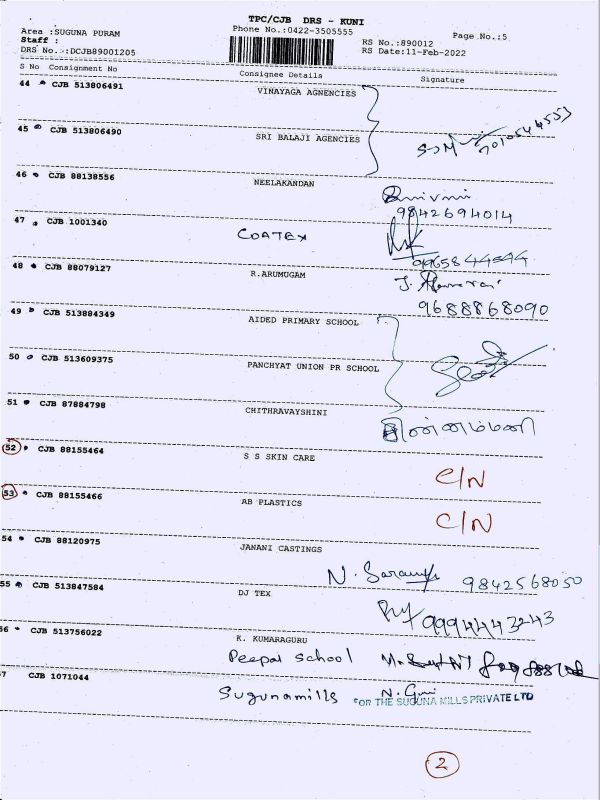 TPC/CJB DRS - KUNI
Area :SUGUNA PURAM
Phone No.:0422-3505555
Page No.:5
Staff :
RS No.:890012
DRS No.:DCJB89001205
RS Date:11-Feb-2022
S No Consignment No Consignee Details Signature
44 CJB 513806491 VINAYAGA AGNENCIES
45 CJB 513806490 SRI BALAJI AGENCIES
46 CJB 88138556 NEELAKANDAN
9842694014
47 CJB 1001340 COATEX
48 CJB 88079127 R.ARUMUGAM
9688868090
49 CJB 513884349 AIDED PRIMARY SCHOOL
50 CJB 513609375 PANCHYAT UNION PR SCHOOL
51 CJB 87884798 CHITHRAVAYSHINI
52 CJB 88155464 S S SKIN CARE C/N
53 CJB 88155466 AB PLASTICS C/N
54 CJB 88120975 JANANI CASTINGS
9842568050
55 CJB 513847584 DJ TEX
9994443243
56 CJB 513756022 K. KUMARAGURU
Peepal School
7 CJB 1071044 Sugunamills
FOR THE SUGUNA MILLS PRIVATE LTD
2